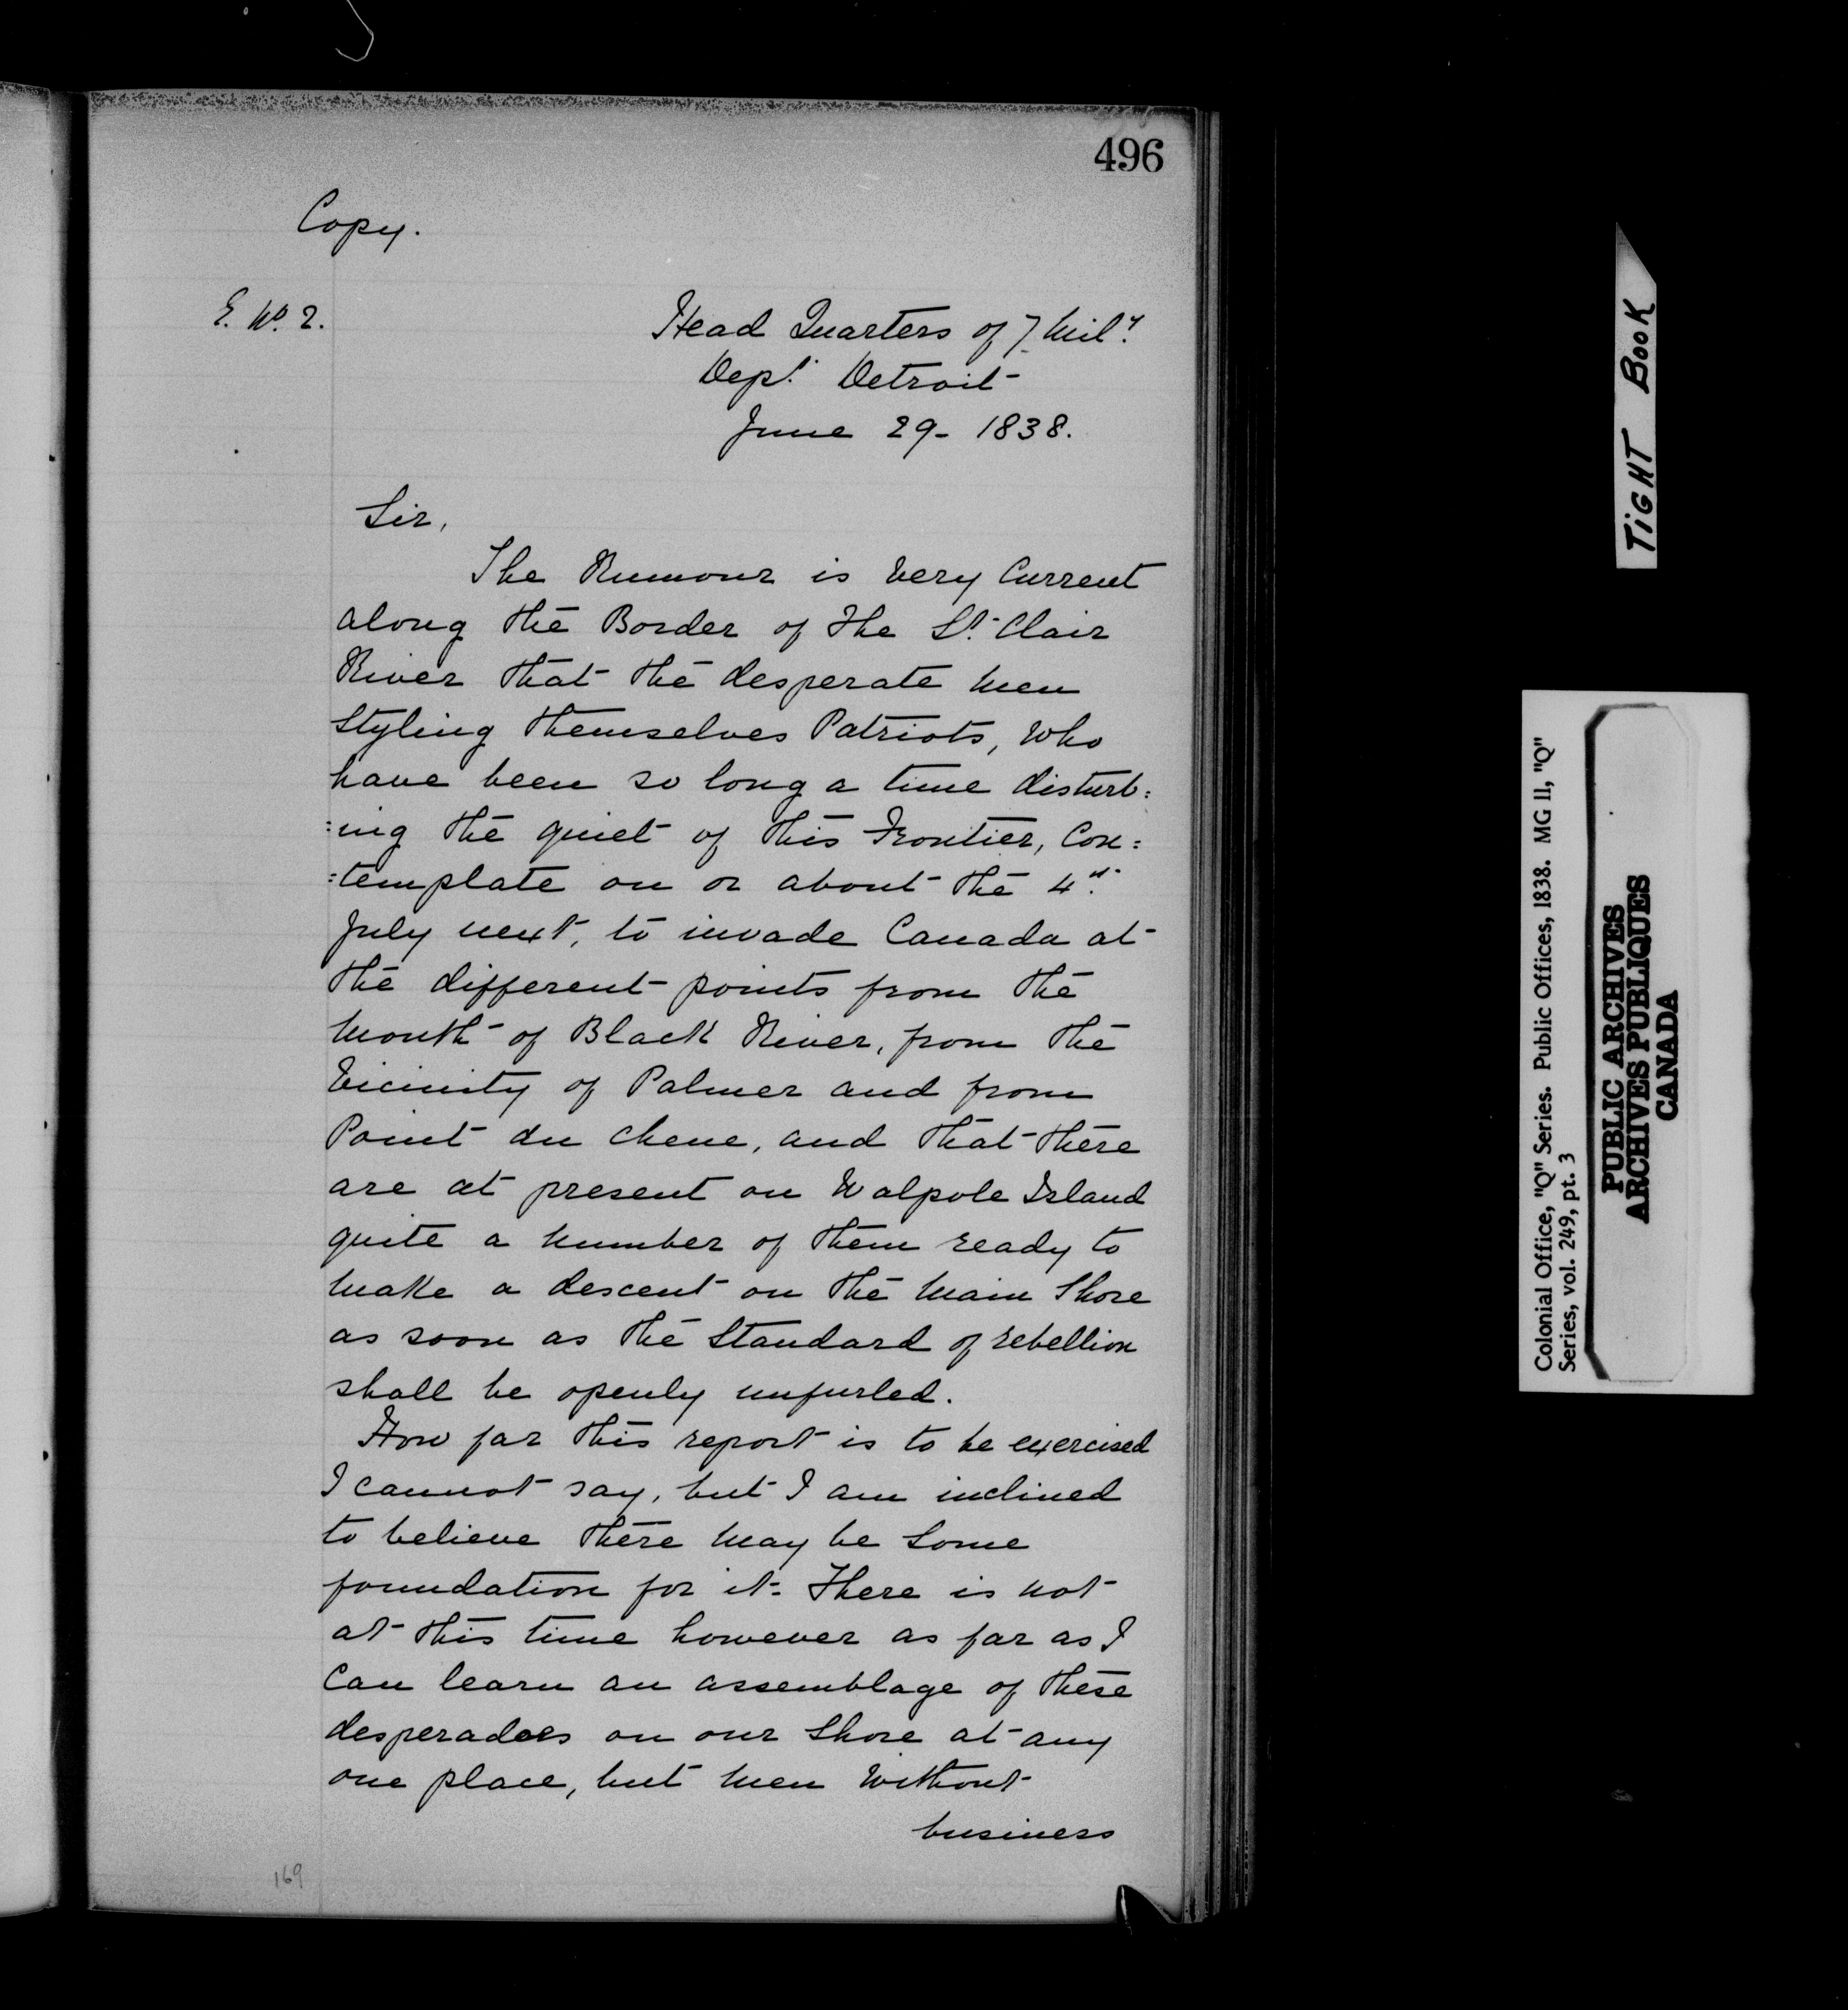 496
Copy.
E. No. 2.
Head Quarters of 7 Mily.
Dept. Detroit
June 29 - 1838.
Sir,
The Rumour is very Current
along the Border of the St. Clair
River that the desperate men
Styling themselves Patriots, who
have been so long a time disturb:
:ing the quiet of this Frontier, Con:
:template on or about the 4th.
July next, to invade Canada at
the different points from the
mouth of Black River, from the
Vicinity of Palmer and from
Point du chene, and that there
are at present on Walpole Island
quite a number of them ready to
make a descent on the main Shore
as soon as the Standard of rebellion
shall be openly unfurled.
How far this report is to be exercised
I cannot say, but I am inclined
to believe there may be some
foundation for it. There is not
at this time however as far as I
can learn an assemblage of these
desperadoes on our Shore at any
one place, but men without
business
169
TIGHT BOOK
Colonial Office, "Q" Series. Public Offices, 1838. MG 11, "Q"
Series, vol. 249, pt. 3
PUBLIC ARCHIVES
ARCHIVES PUBLIQUES
CANADA